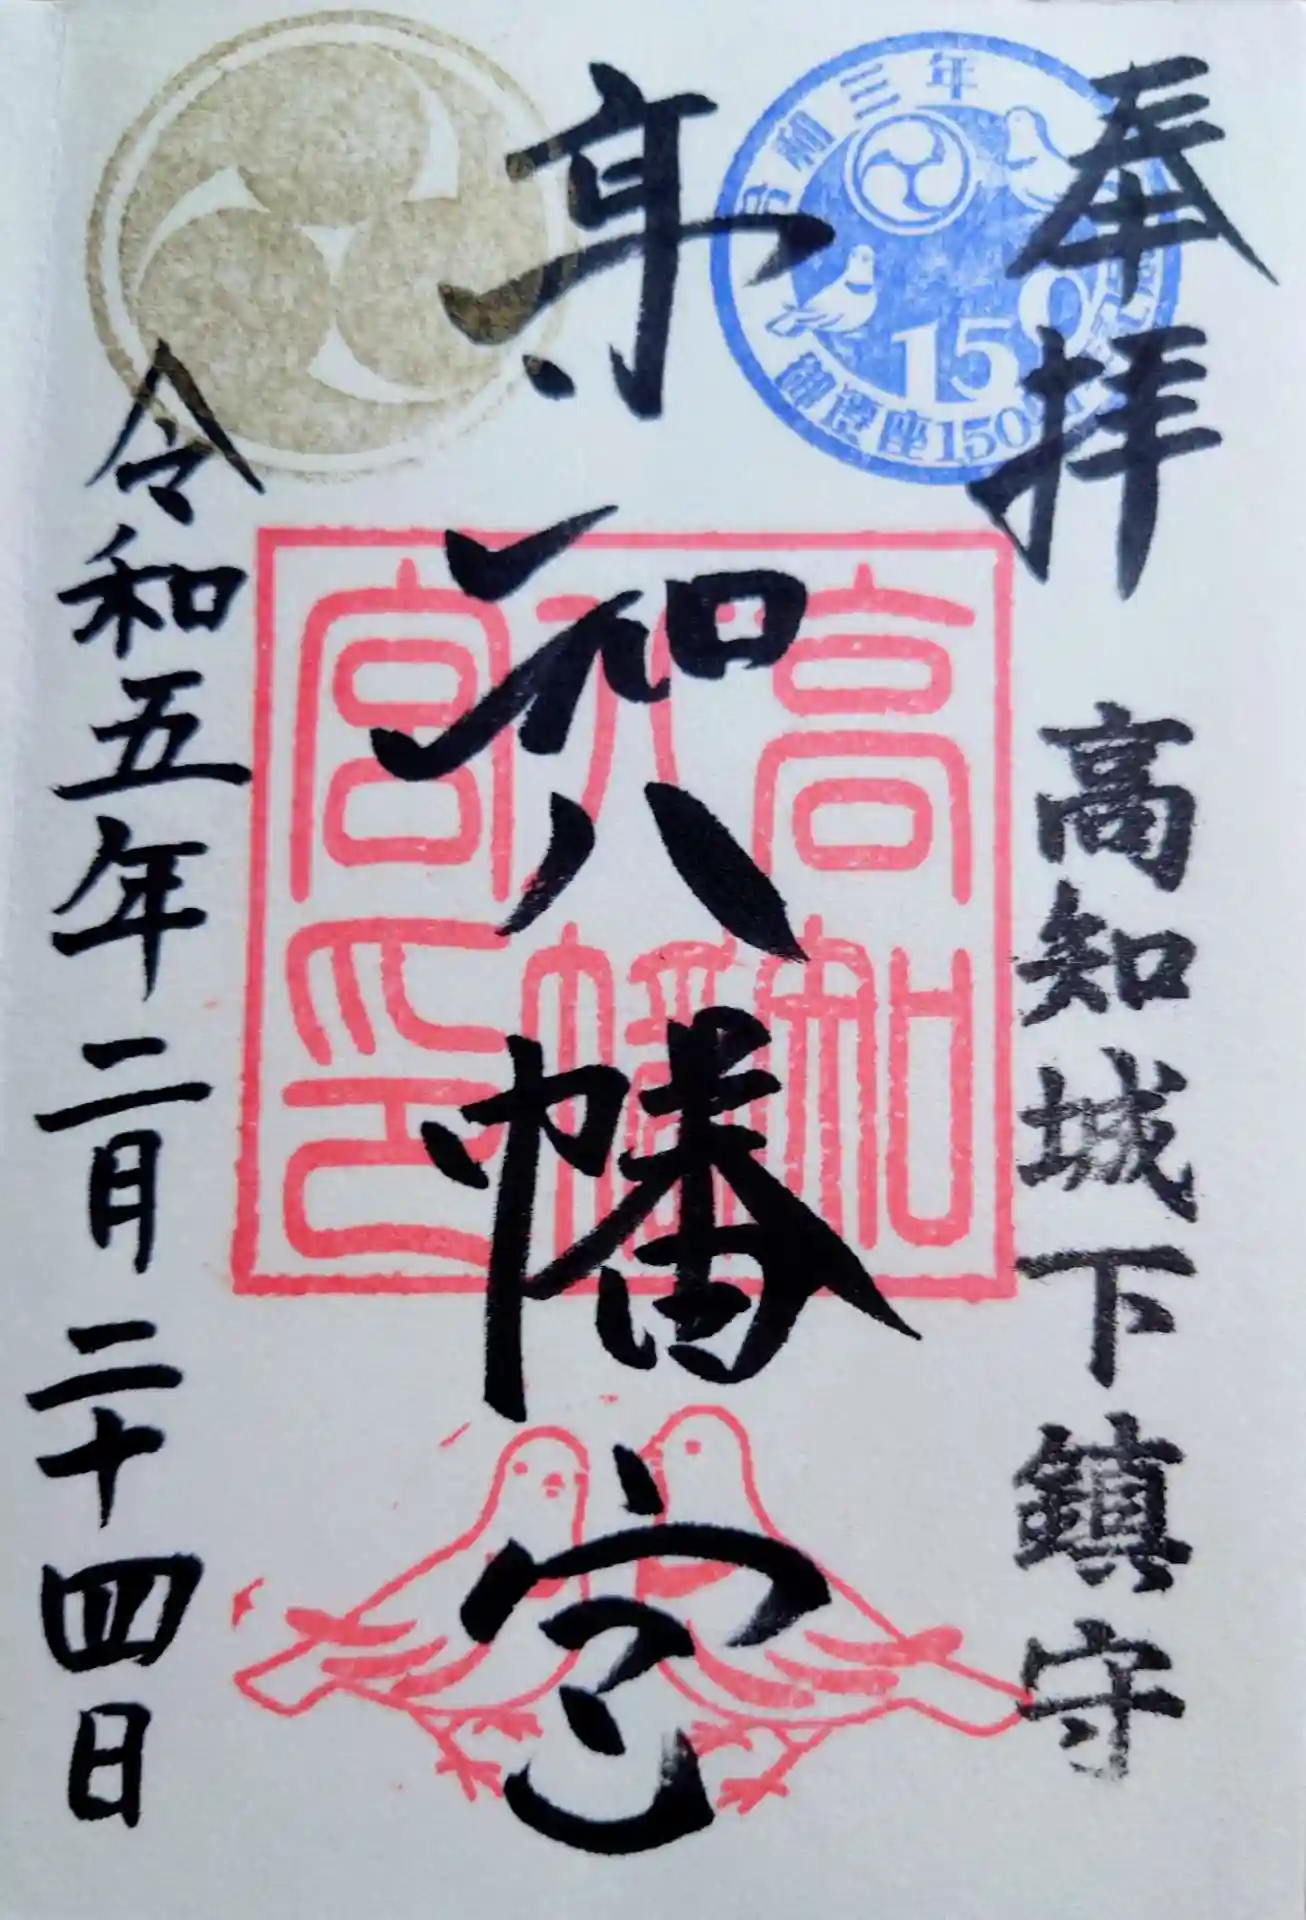 奉拝
高知城下鎮守
高知八幡宮
令和五年二月二十四日
令和三年
150
御遷座150
高知
八幡
宮印